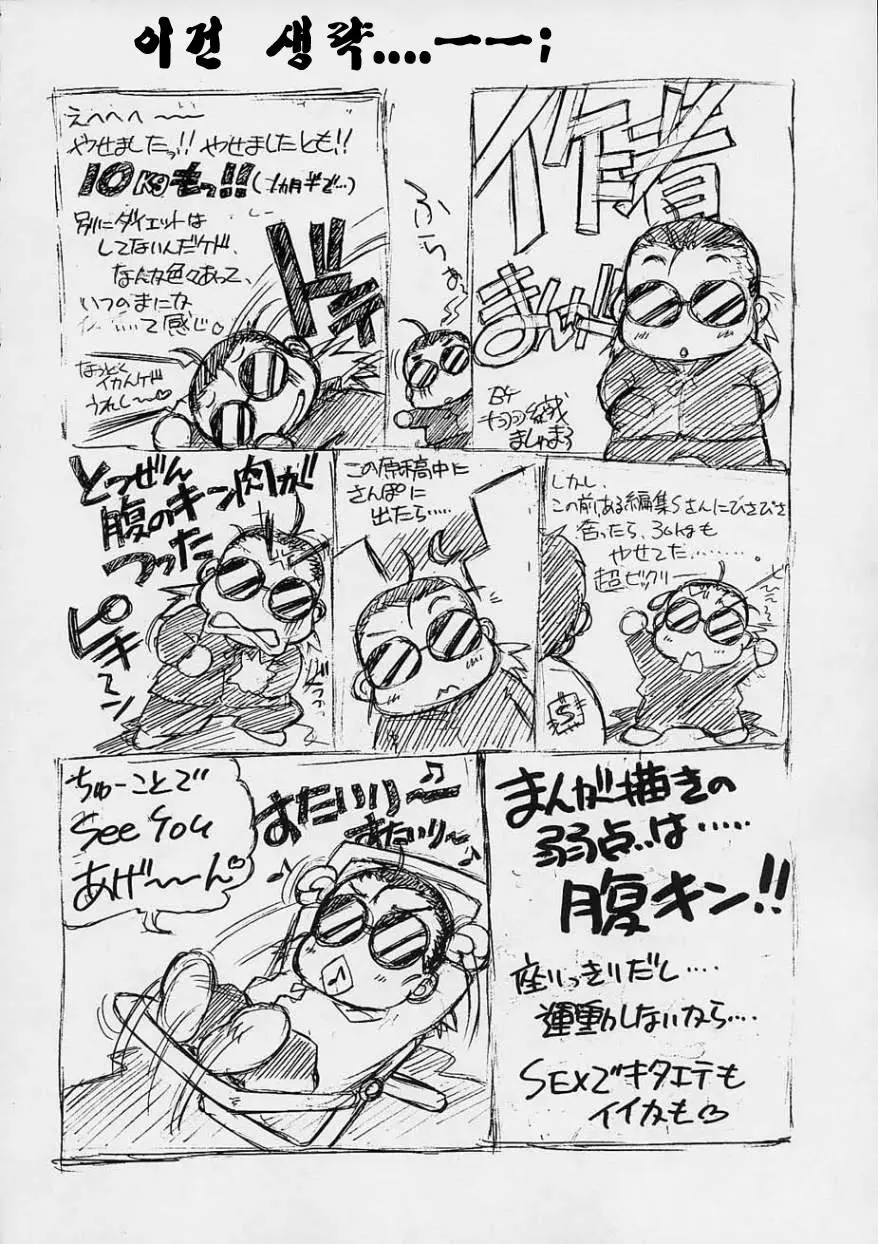 이건 생략....ㅡㅡ;
作者
まんが
BY
ましゅまろ
ふらぁ〜
えへへへ〜
やせましたっ!! やせましたとも!!
10Kgもっ!!(1カ月半で…)
別にダイエットは
してないんだケド、
なんか色々あって、
いつのまにな
て感じ。
なっとく
イカんケド
うれし〜♡
しかし、
この前、ある編集Sさんにひさびさ
会ったら、30kgも
やせてた………。
超ビックリー
S
この原稿中に
さんぽに
出たら……
とつぜん
腹のキン肉が
つった
ピキーン
まんが描きの
弱点は……
腹キン!!
座りっきりだし……
運動しないなら…
SEXでキタエテも
イイカも♡
ちゅーことで
See You
あげ〜〜ん♡
♫
すたいりー
すたいり〜♪
♪